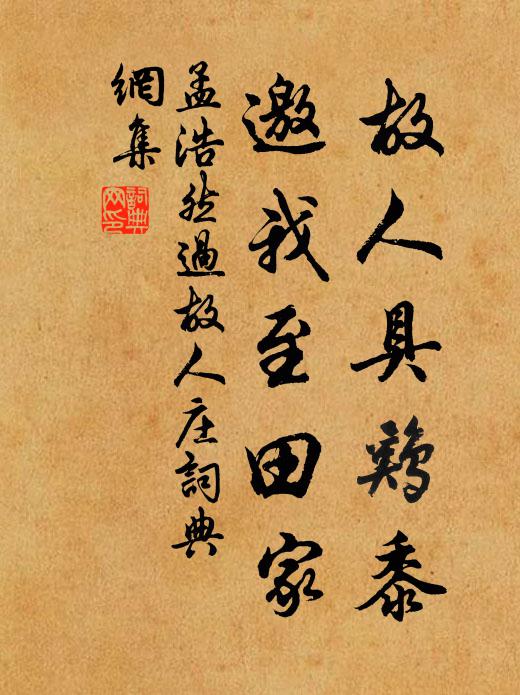 故人具鷄黍
邀我至田家
孟浩然過故人庄詞典
網集
詞典
网印